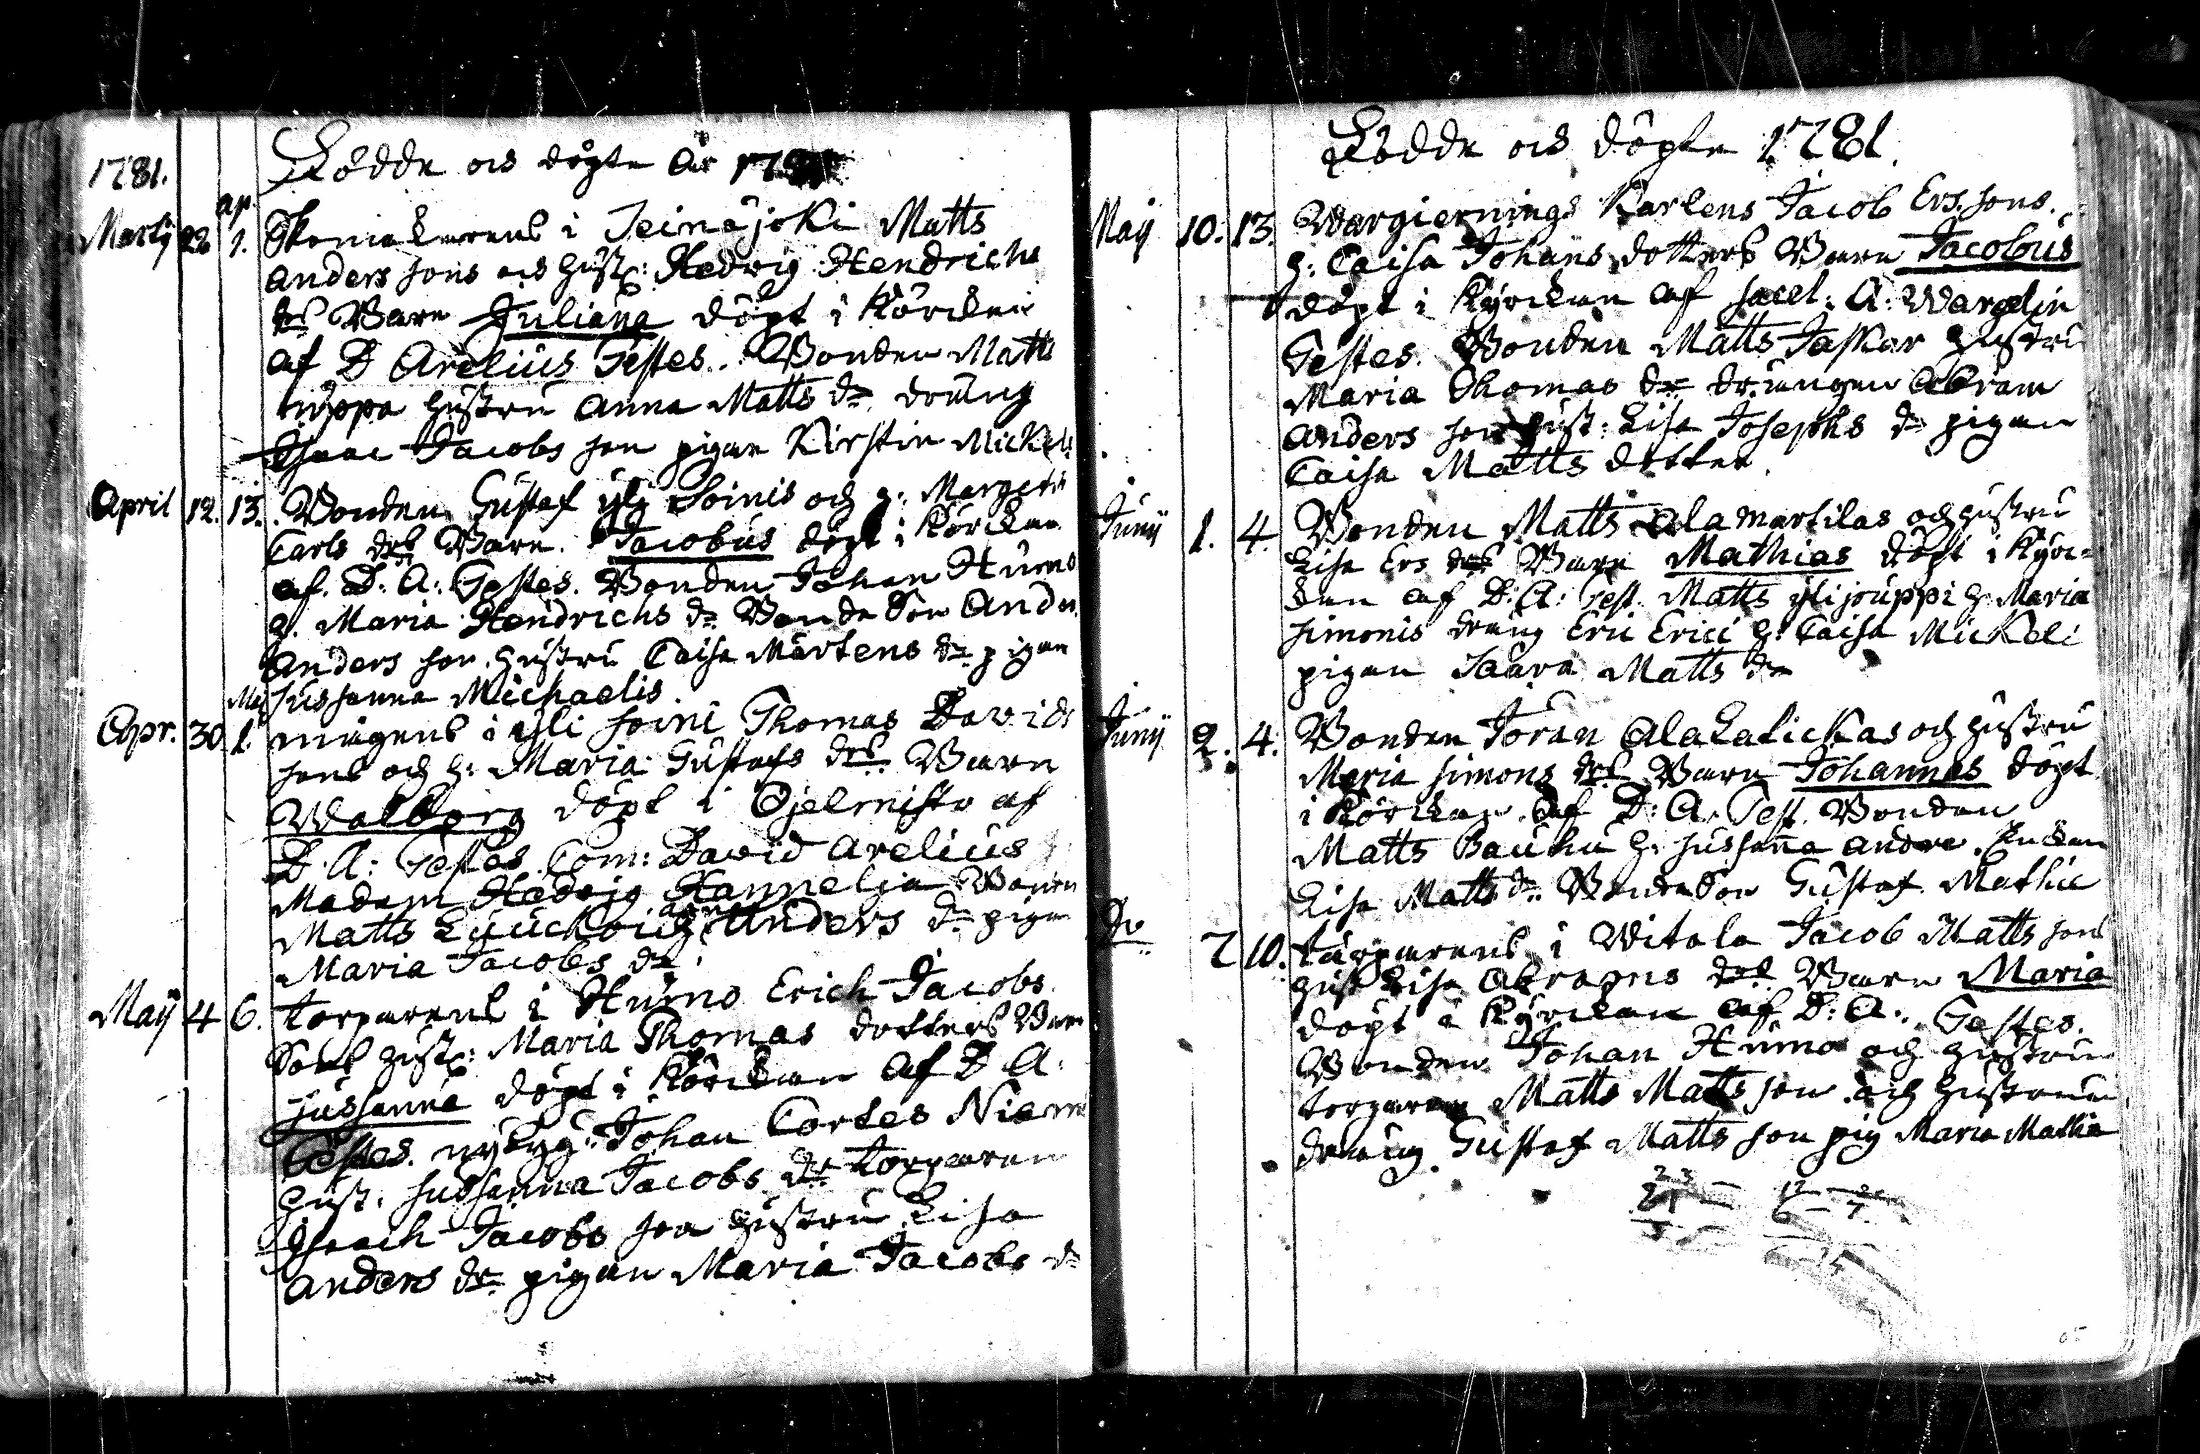 1781.
Födde och döpte År 17
ap.
Martij 28 1. Skomakarens i Seinäjoki Matts
Anders sons och hust: Hedvig Hendrichs
drs Barn Juliana döpt i Körckan
af D Arelius Testes. Bonden Matts
hustru Anna Matts dr. dräng
Isaac Jacobs son pigan Kirstin Mickels
April 12. 13. Bonden Gustaf yli Soinis och h: Margeta
Carls drs Barn. Jacobus döpt i Körckan
af. D: A: Testes. Bonden Johan Hurno
h. Maria Hendrichs dr Bonde Son Anders
Anders son hustru Caisa Mårtens dr pigan
Sussanna Michaelis.
Maj
Apr. 30. 1. i yli soini Thomas Davids
sons och h: Maria Gustafs drs Barn
Walborg döpt i af
D. A: Testes Com: David Arelius
Madam Hedvig Hannelja
Matts och Anders dr pigan
Maria Jacobs dr.
Maij 4 6. torparens i Hurno Erich Jacobs
Sons hust: Maria Thomas dotters Barn
Sussanna döpt i Körckan af D A.
Testes. nybyg: Johan Carles Niemi
hust. Sussanna Jacobs dr torparen
Isaach Jacobs son hustru Lisa
Anders dr pigan Maria Jacobs dr
Födde och döpte 1781.
Maij 10. 13. Wargiernings Karlens Jacob Ers. sons.
h: Caisa Johans dotters Barn Jacobus
döpt i Kyrckan af sacel: A: Wargelin
Testes. Bonden Matts Jaskar hustru
Maria Thomas dr drängen Abram
Anders son hust: Lisa Josephs dr pigan
Caisa Matts dotter.
Junij 1. 4. Bonden Matts Alamartilas och hustru
Lisa Ers drs Barn Mathias döpt i Kyrc-
kan af D: A: Test. Matts ylijouppi h: Maria
Simonis dräng Eric Erici h: Caisa Mickeli
pigan Saara Matts dr
Junij 2. 4. Bonden Jöran Alakalickas och hustru
Maria Simons drs Barn Johannes döpt
i Körckan af D: A. Test. Bonden
Matts Bauhu h. Sussanna Andre. Enckan
Lisa Matts dr. Bonde Son Gustaf Mathie
Do 7 10. torparens i Witala Jacob Matts sons
hust Lisa Abrams drs Barn Maria
döpt i Kyrckan af D: A: Testes.
Bonden Johan Hurno och hustrun
torparen Matts Matts son och hustrun
dräng Gustaf Matts son pig Maria Mathia